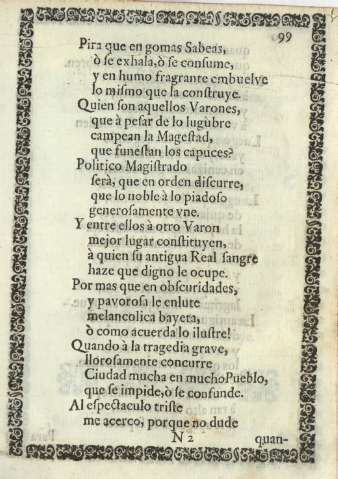 99
Pira que en gomas Sabeas,
ò se exhala, ò se consume,
y en humo fragrante embuelve
lo mismo que la construye.
Quien son aquellos Varones,
que à pesar de lo lugubre
campean la Magestad,
que funestan los capuces?
Politico Magistrado
serà, que en orden discurre,
que lo noble à lo piadoso
generosamente vne.
Y entre ellos à otro Varon
mejor lugar constituyen,
à quien su antigua Real sangre
haze que digno le ocupe.
Por mas que en obscuridades,
y pavorosa le enlute
melancolica bayeta,
ò como acuerda lo ilustre!
Quando à la tragedia grave,
llorosamente concurre
Ciudad mucha en mucho Pueblo,
que se impide, ò se confunde.
Al espectaculo triste
me acerco, porque no dude
N 2 quan-